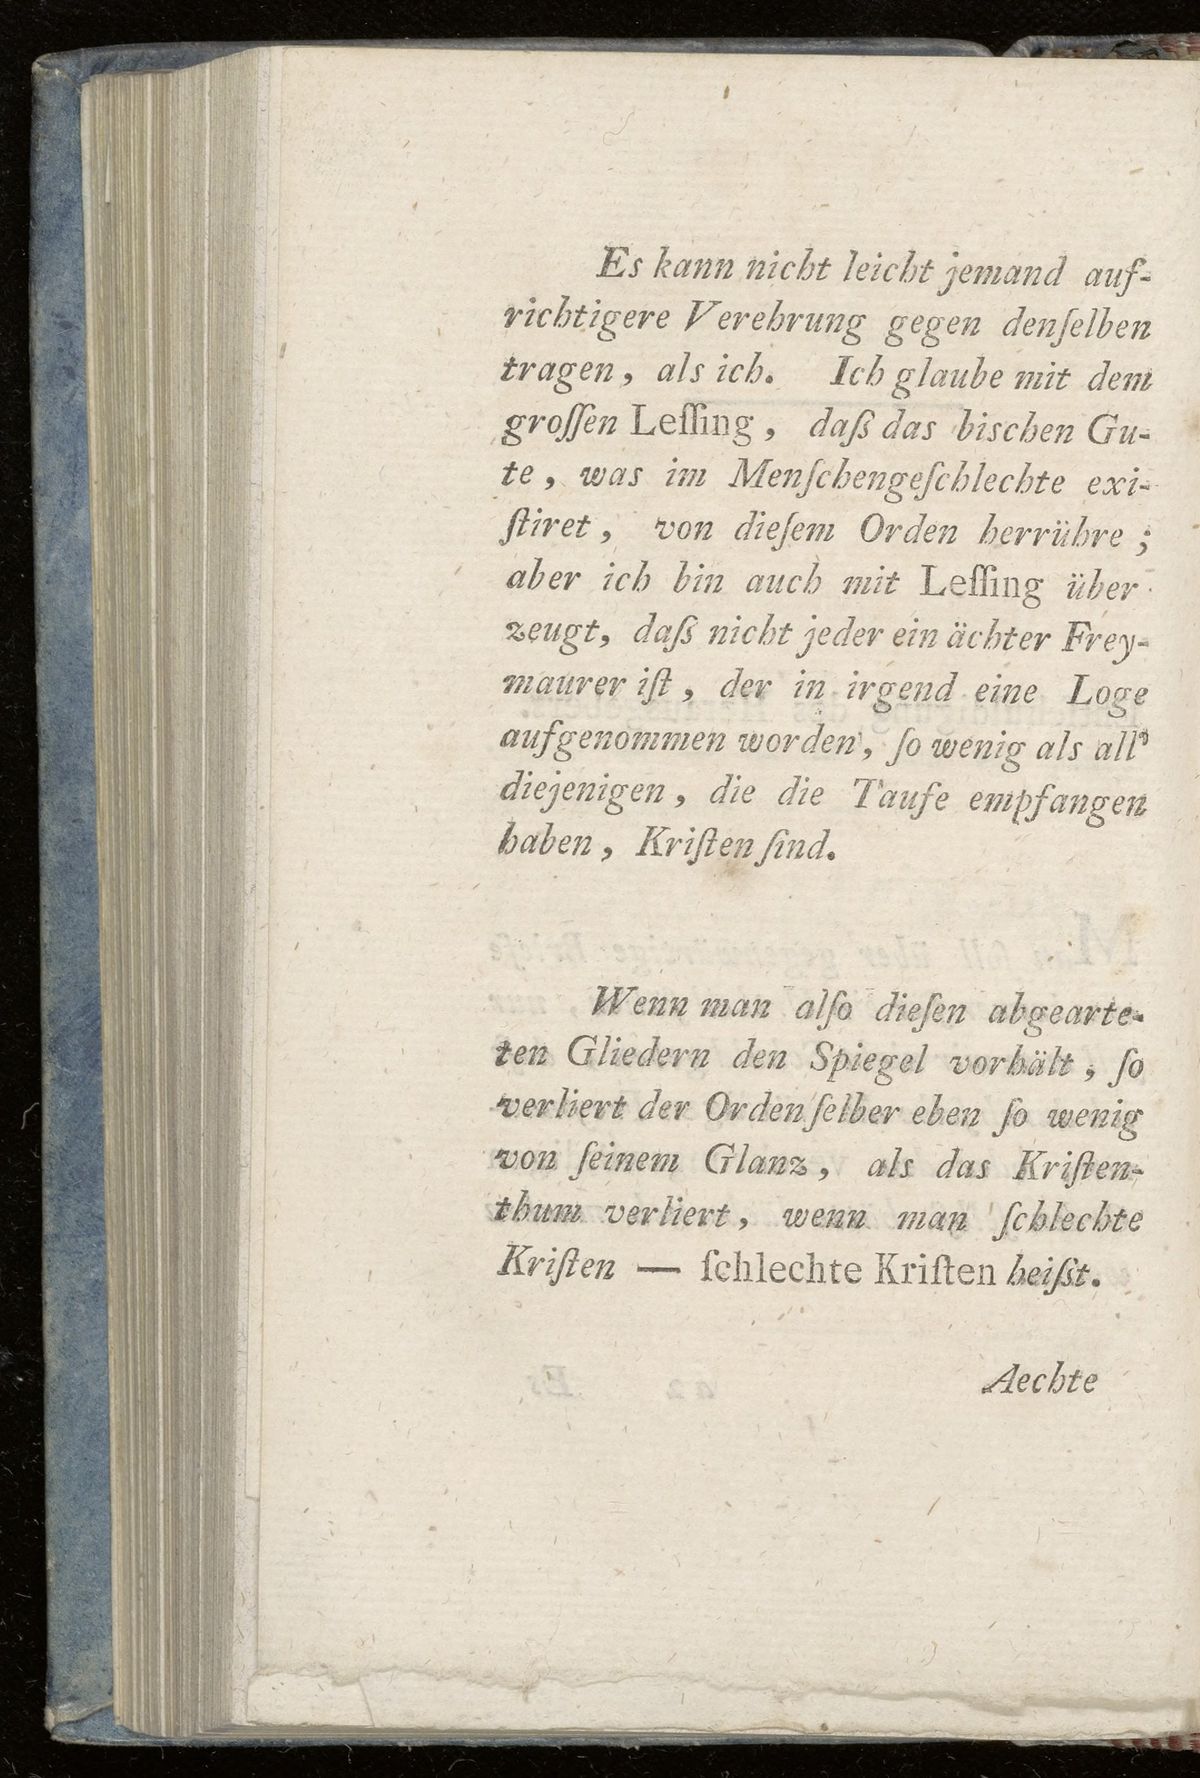 Es kann nicht leicht jemand auf-
richtigere Verehrung gegen denſelben
tragen, als ich. Ich glaube mit dem
groſſen Leſſing, daß das bischen Gu-
te, was im Menſchengeſchlechte exi-
ſtiret, von dieſem Orden herrühre;
aber ich bin auch mit Leſſing über
zeugt, daß nicht jeder ein ächter Frey-
maurer iſt, der in irgend eine Loge
aufgenommen worden, ſo wenig als all'
diejenigen, die die Taufe empfangen
haben, Kriſten ſind.
Wenn man alſo dieſen abgearte-
ten Gliedern den Spiegel vorhält, ſo
verliert der Orden ſelber eben ſo wenig
von ſeinem Glanz, als das Kriſten-
thum verliert, wenn man ſchlechte
Kriſten — ſchlechte Kriſten heißt.
Aechte